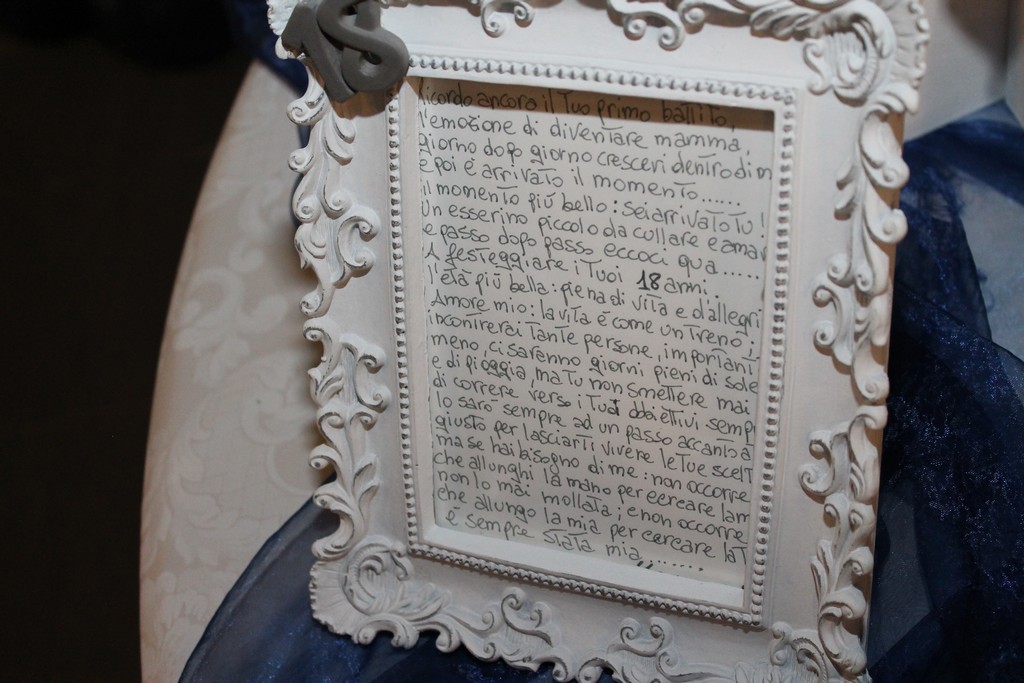 18
Ricordo ancora il Tuo primo battito,
l'emozione di diventare mamma,
giorno dopo giorno cresceri dentro di m
e poi é arrivato il momento......
il momento più bello: sei arrivato tu!
un esserino piccolo da cullare e amar
e passo dopo passo eccoci qua.....
A festeggiare i Tuoi 18 anni..
l'età più bella: piena di vita e d'allegri
Amore mio: la vita é come un treno!
incontrerai tante persone, importanti
meno, ci saranno giorni pieni di sole
e di pioggia, ma tu non smettere mai
di correre verso i tuoi obiettivi semp
Io sarò sempre ad un passo accanto a
giusto per lasciarti vivere le tue scelt
ma se hai bisogno di me: non occorre
che allunghi la mano per cercare la m
non l'ho mai mollata; e non occorre
che allungo la mia per cercare la t
é sempre stata mia........